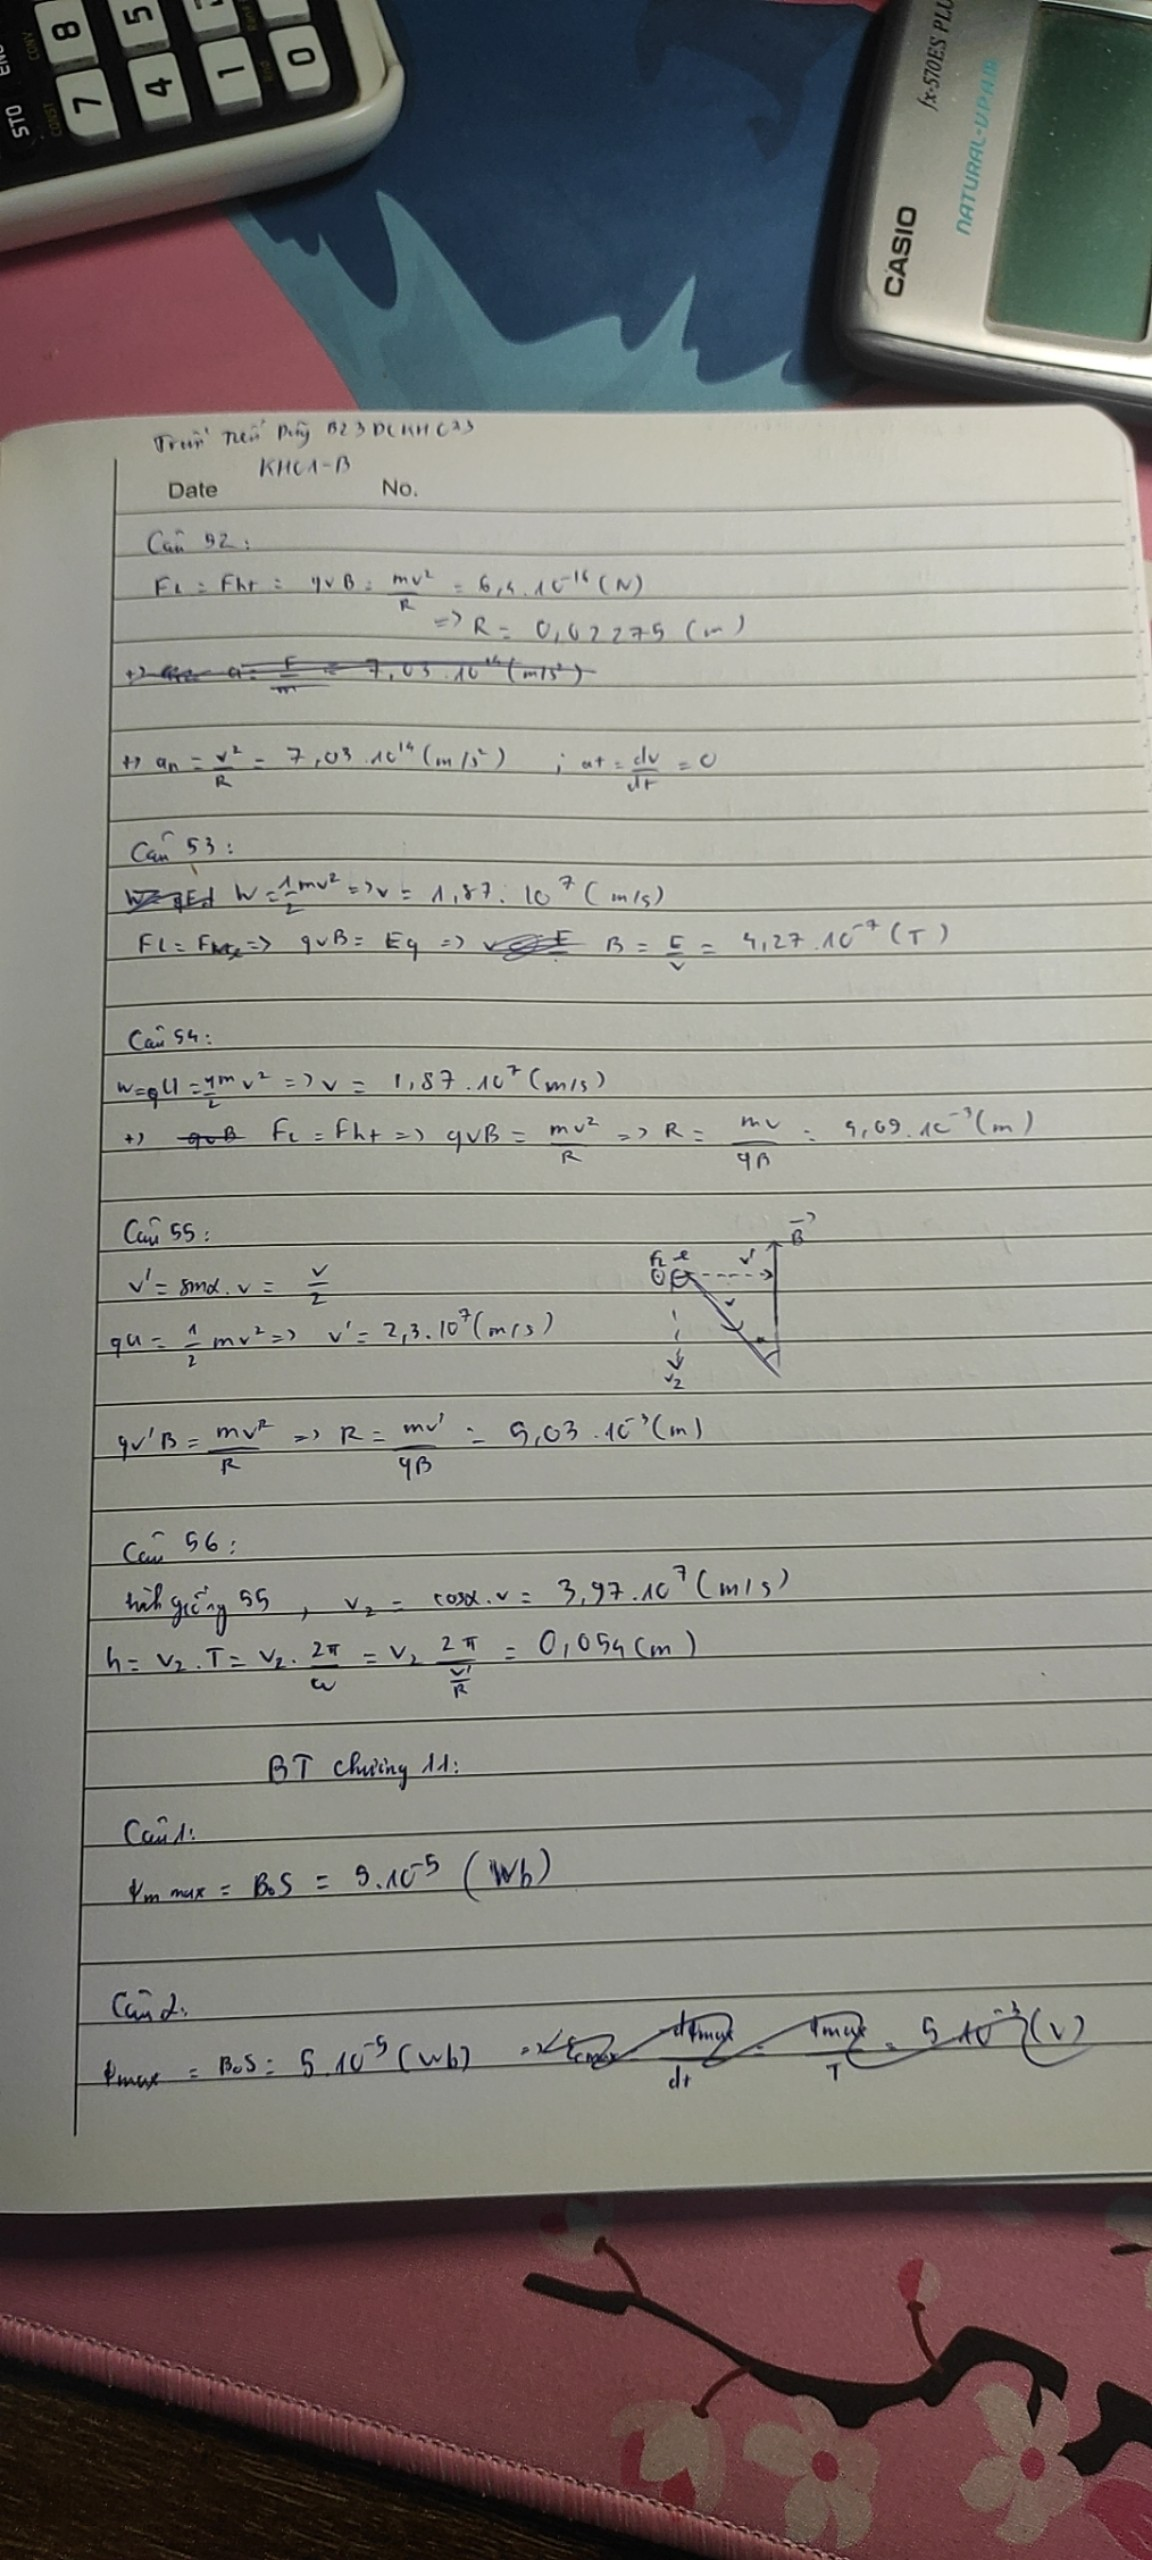 STO
CONST
CONV
7 8
4 5
1
0
fx-570ES PLU
NATURAL-V.P.A.M.
CASIO
B23DCKHC23
KHC1-B
Date No.
Câu 52:
FL = Fht = qvB = mv²/R = 6,4.10⁻¹⁶ (N)
=> R = 0,02275 (m)
+) an = v²/R = 7,03.10¹⁴ (m/s²) ; at = dv/dt = 0
Câu 53:
W = 1/2 mv² => v = 1,87.10⁷ (m/s)
FL = => qvB = Eq => B = E/v = 4,27.10⁻⁷ (T)
Câu 54:
W=qU = 1/2 mv² => v = 1,87.10⁷ (m/s)
+) qvB FL = Fht => qvB = mv²/R => R = mv/qB = .10⁻³ (m)
Câu 55:
B
FL e v'
v
v2
v' = sinα.v = v/2
qU = 1/2 mv² => v' = 2,3.10⁷ (m/s)
qv'B = /R => R = mv'/qB = 5,03.10⁻³ (m)
Câu 56:
hình giống 55 , v2 = cosα.v = 3,97.10⁷ (m/s)
h = v2.T = v2.2π/ω = v2 2π/(v'/R) = 0,054 (m)
BT chương 11:
Câu 1:
Φm max = BoS = 5.10⁻⁵ (Wb)
Câu 2:
Φmax = BoS = 5.10⁻⁵ (Wb) => dΦmax/dt = Φmax/T = 5.10⁻³ (V)